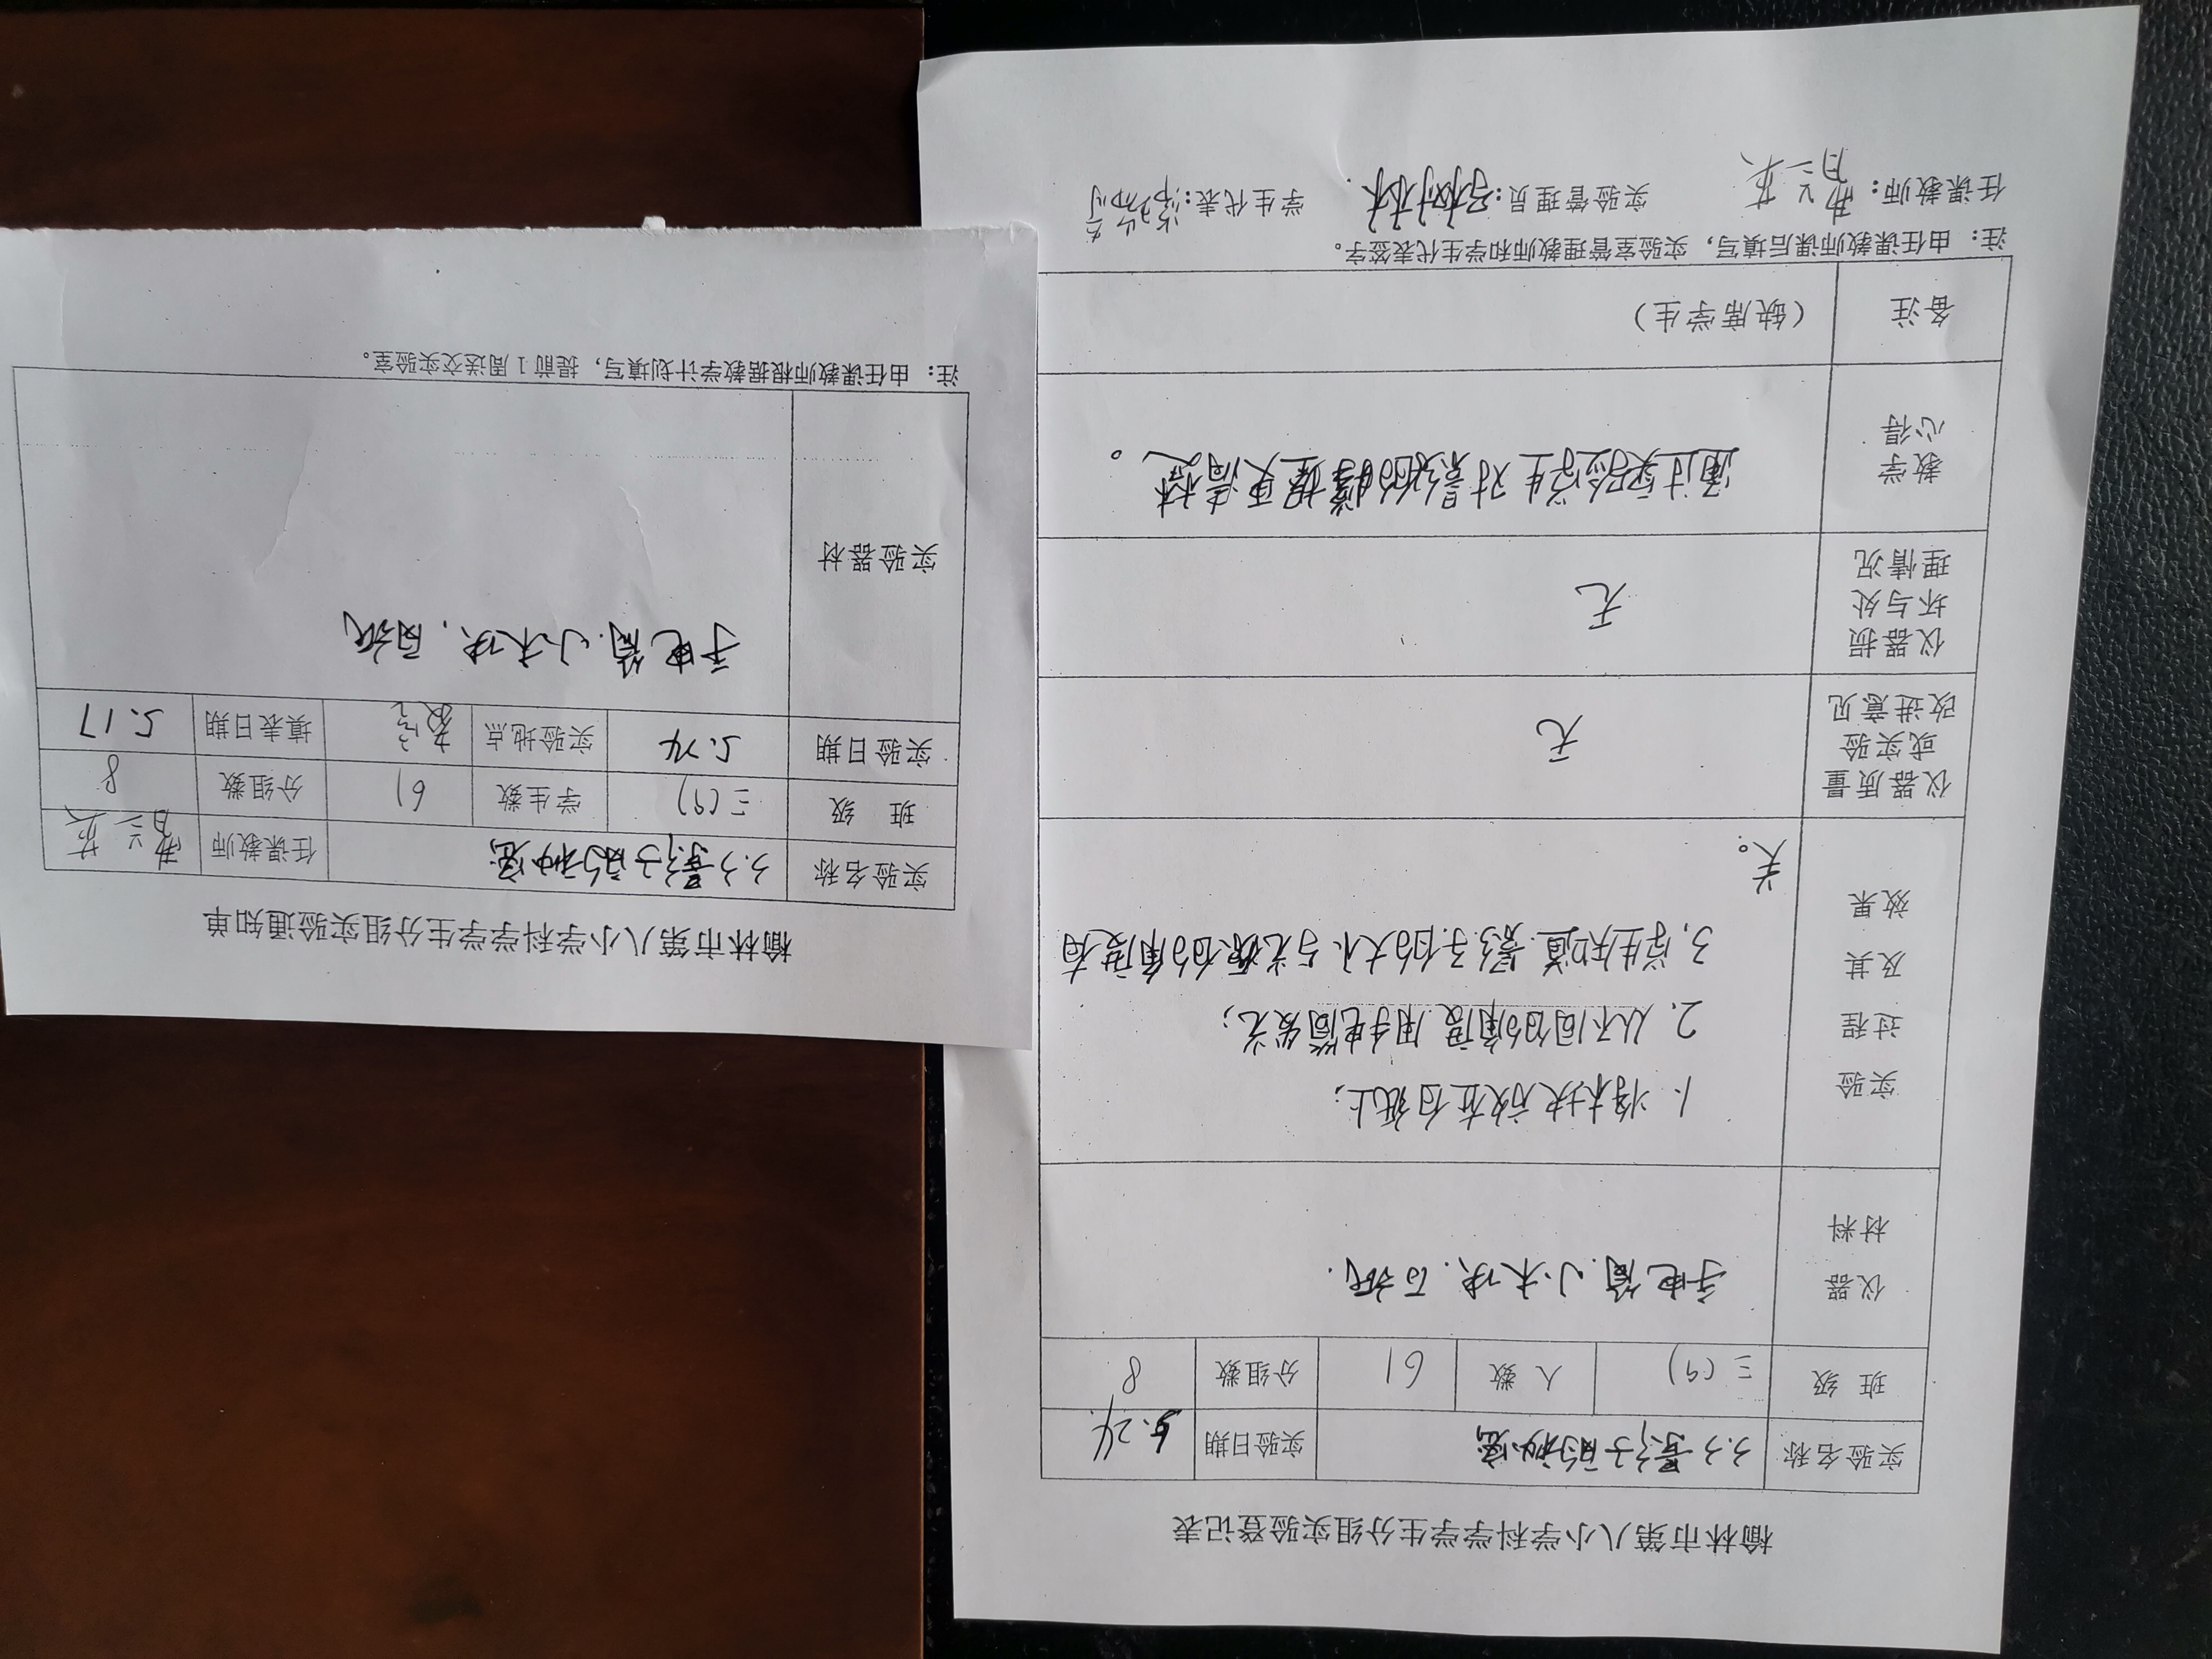 榆林市第八小学科学学生分组实验登记表
实验名称 3.3影子的秘密 实验日期 5.24
班 级 三(9) 人 数 61 分组数 8
仪器
材料
手电筒.小木块.白纸.
实验
过程
及其
效果
1、将木块放在白纸上;
2、从不同的角度用手电筒发光;
3、学生知道影子的大小与光源的角度有
关。
仪器质量
或实验
改进意见
无
仪器损
坏与处
理情况
无
教学
心得
通过实验学生对影的
备注 (缺席学生)
注: 由任课教师课后填写, 实验室管理教师和学生代表签字。
任课教师: 实验管理员: 学生代表:
榆林市第八小学科学学生分组实验通知单
实验名称 3.3影子的秘密 任课教师
班 级 三(9) 学生数 61 分组数 8
实验日期 5.24 实验地点 教室 填表日期 5.17
实验器材
手电筒.小木块,白纸
注: 由任课教师根据教学计划填写, 提前1周送交实验室。